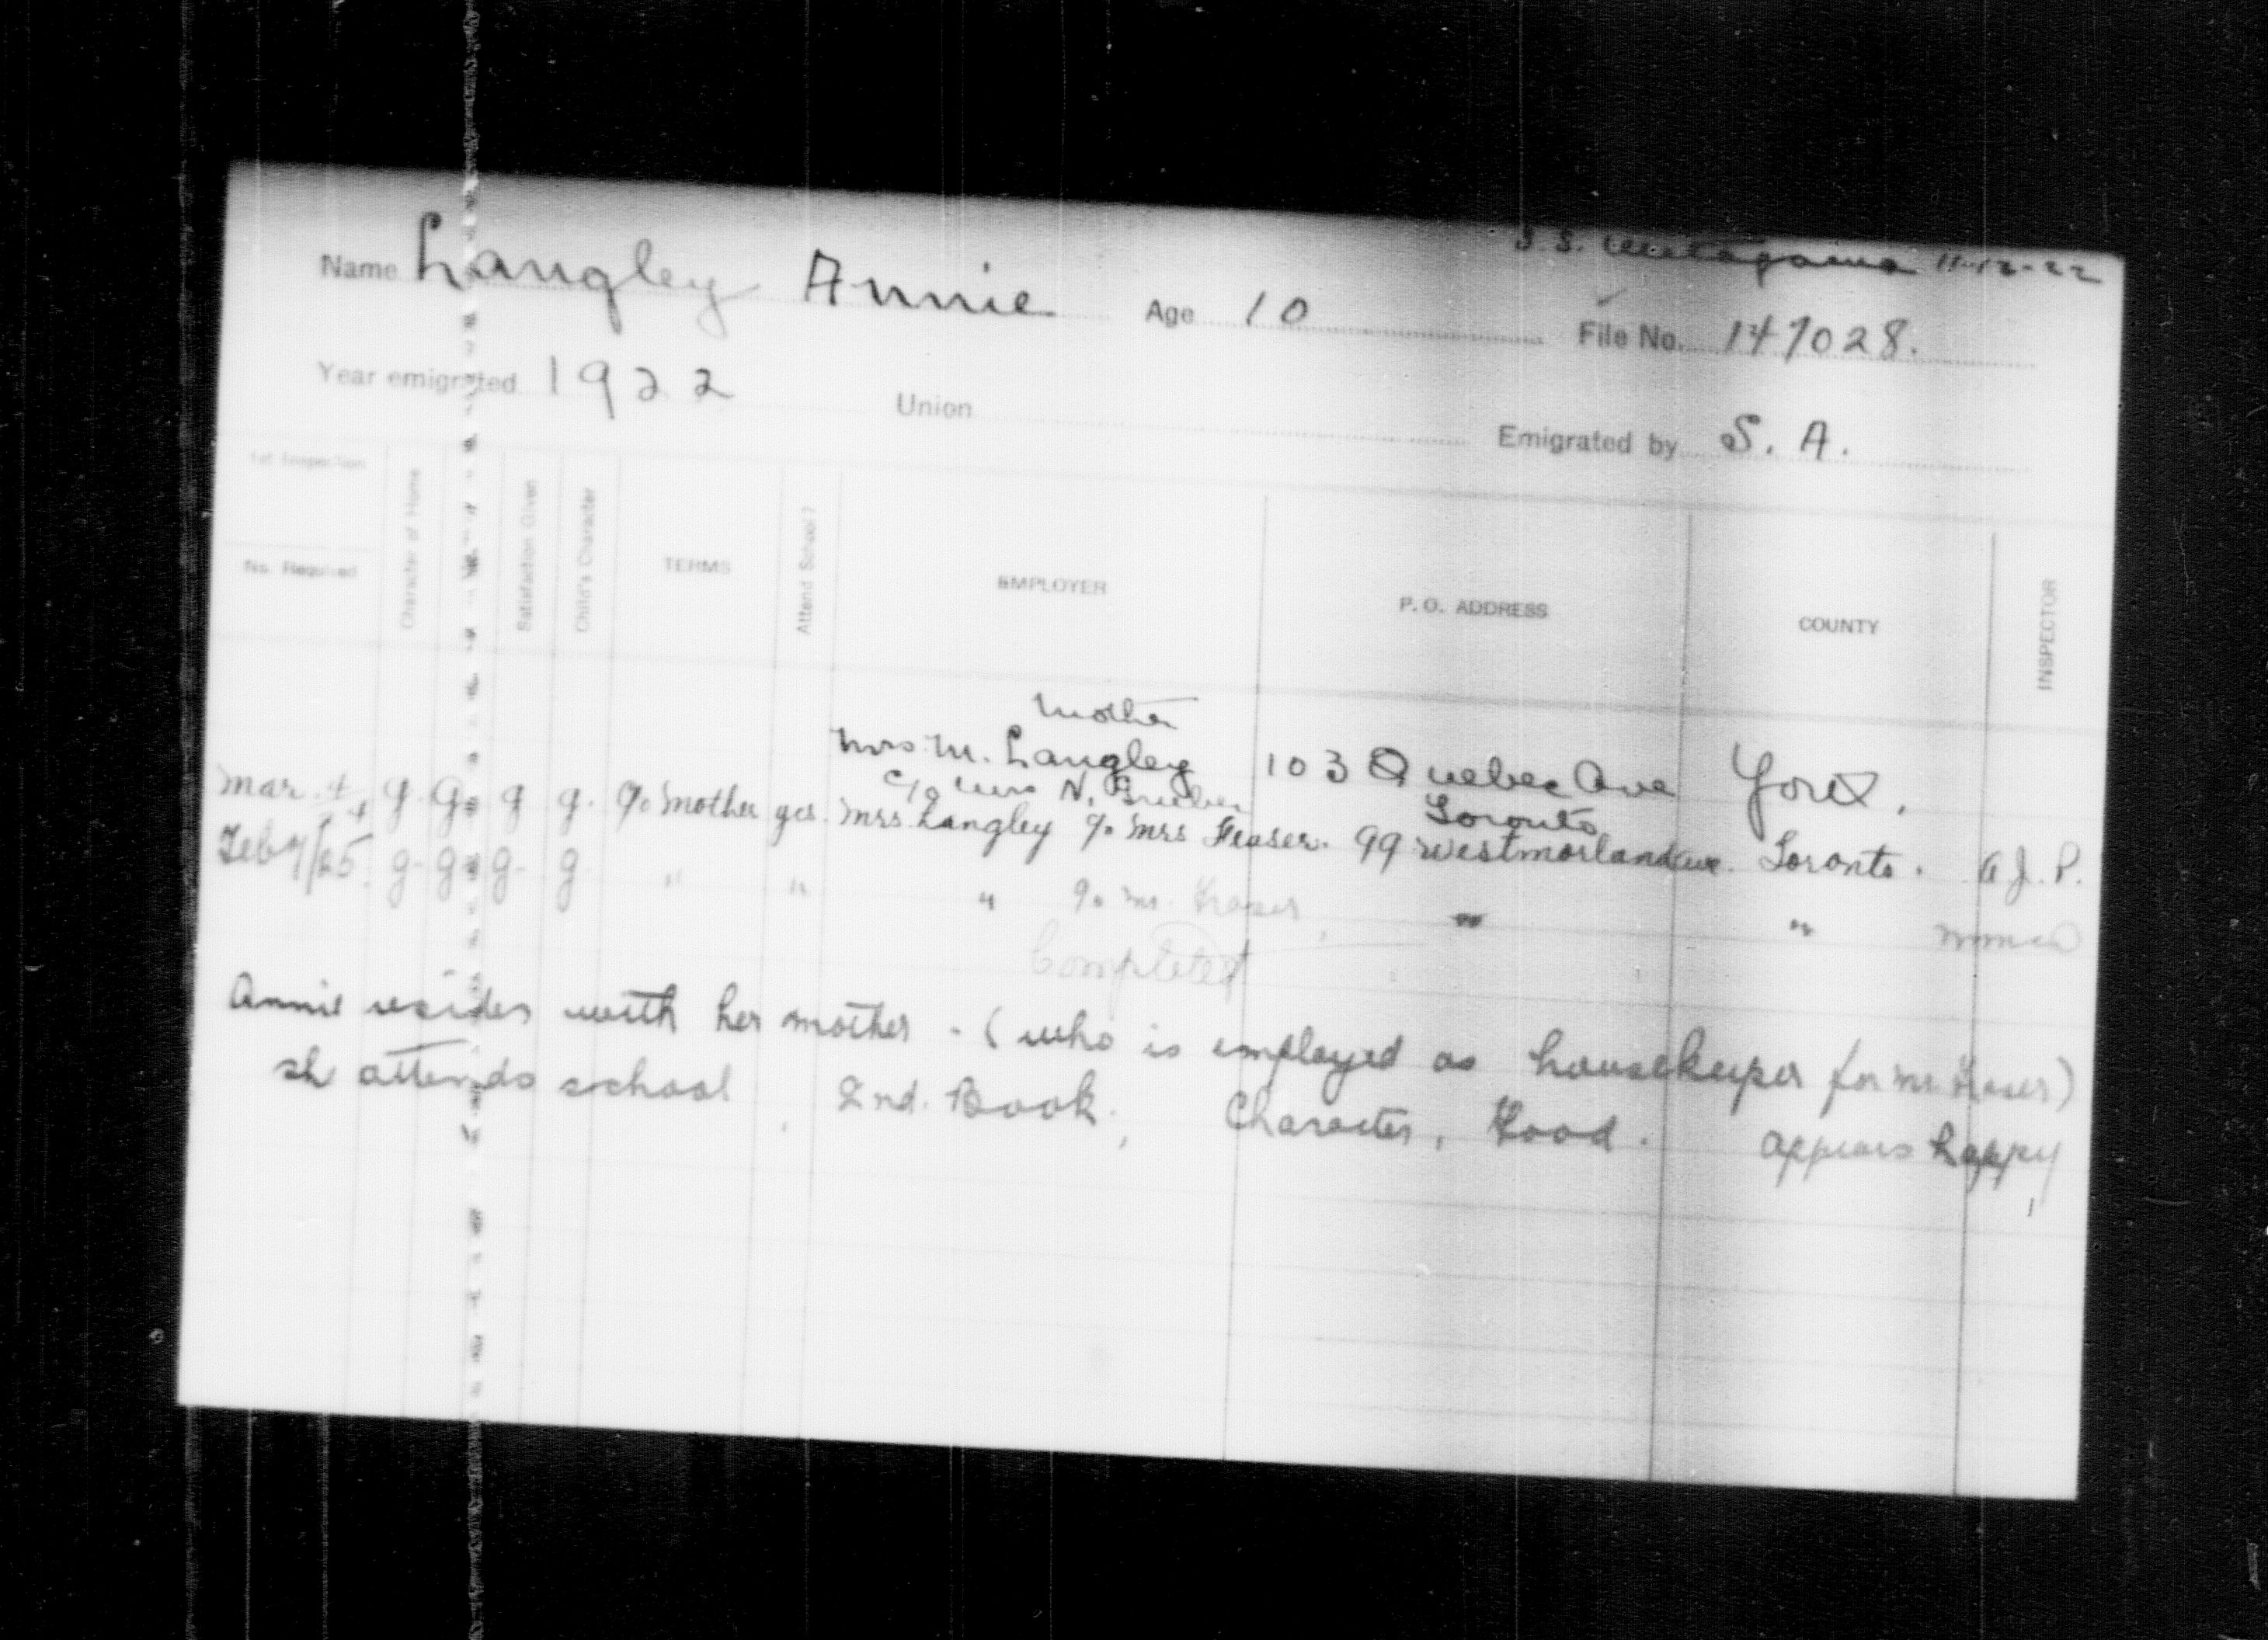 S.S. Metagama 11-12-22
Name Langley Annie Age 10 File No. 147028.
Year emigrated 1922 Union Emigrated by S. A.
1st Inspection
No. Required
Character of Home
Satisfaction Given
Child's Character
TERMS
Attend School?
EMPLOYER
P. O. ADDRESS
COUNTY
INSPECTOR
Mother
Mrs. M. Langley 103 Quebec Ave York.
c/o Mrs N. Toronto
Mar. 4 g. g. g g. c/o Mother yes. Mrs. Langley c/o Mrs Fraser. 99 Westmorland Ave. Toronto. A J. P.
Feb 7/25. g. g. g. g. " " " c/o Mr. Fraser, " "
Completed
Annie resides with her mother - (who is employed as housekeeper for Mr. Fraser)
sh attends school, 2nd. Book, Character, Good. Appears happy